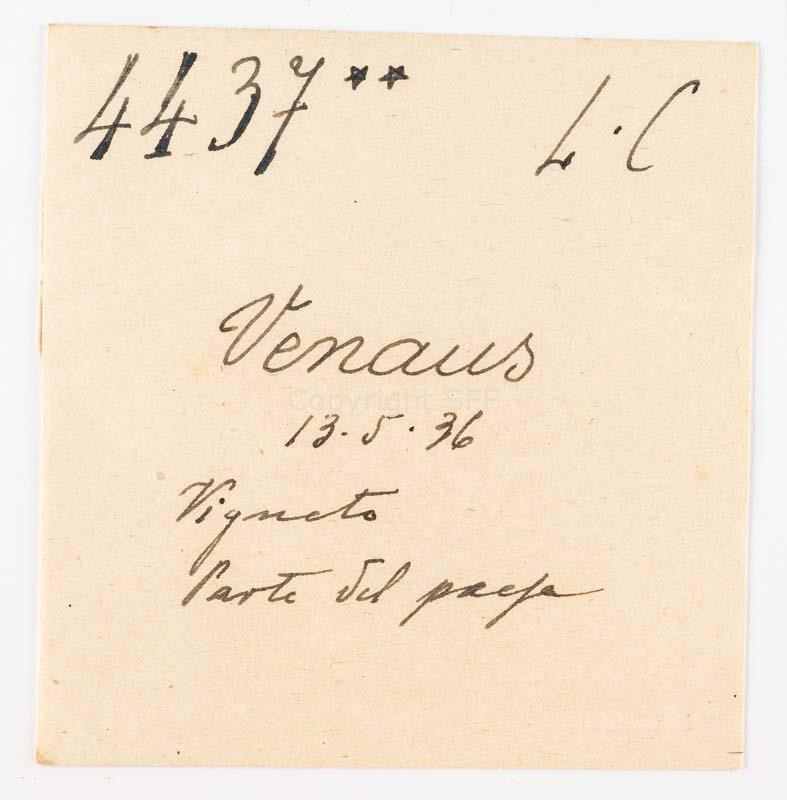 4437** L. C
Venaus
Copyright SFF
13.5.36
Vigneto
Parte del paese